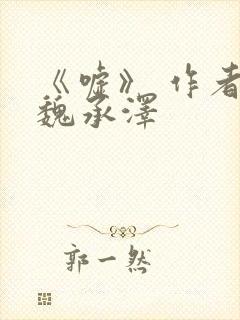 《嘘》 作者
魏承泽
郭一然